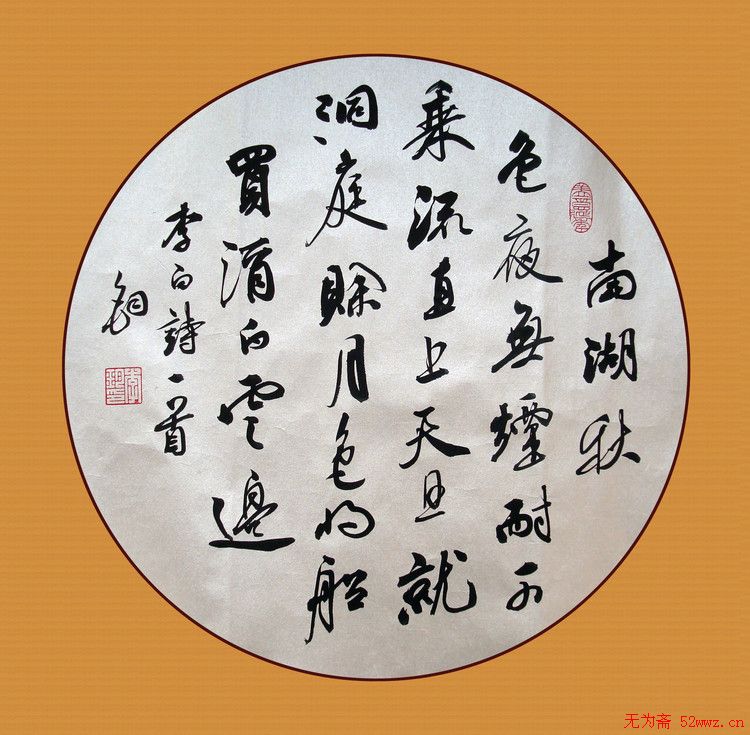 南湖秋
色夜無煙耐可
乘流直上天且就
洞庭賒月色將船
買酒白雲邊
李白詩一首
无为斋 52wwz.cn